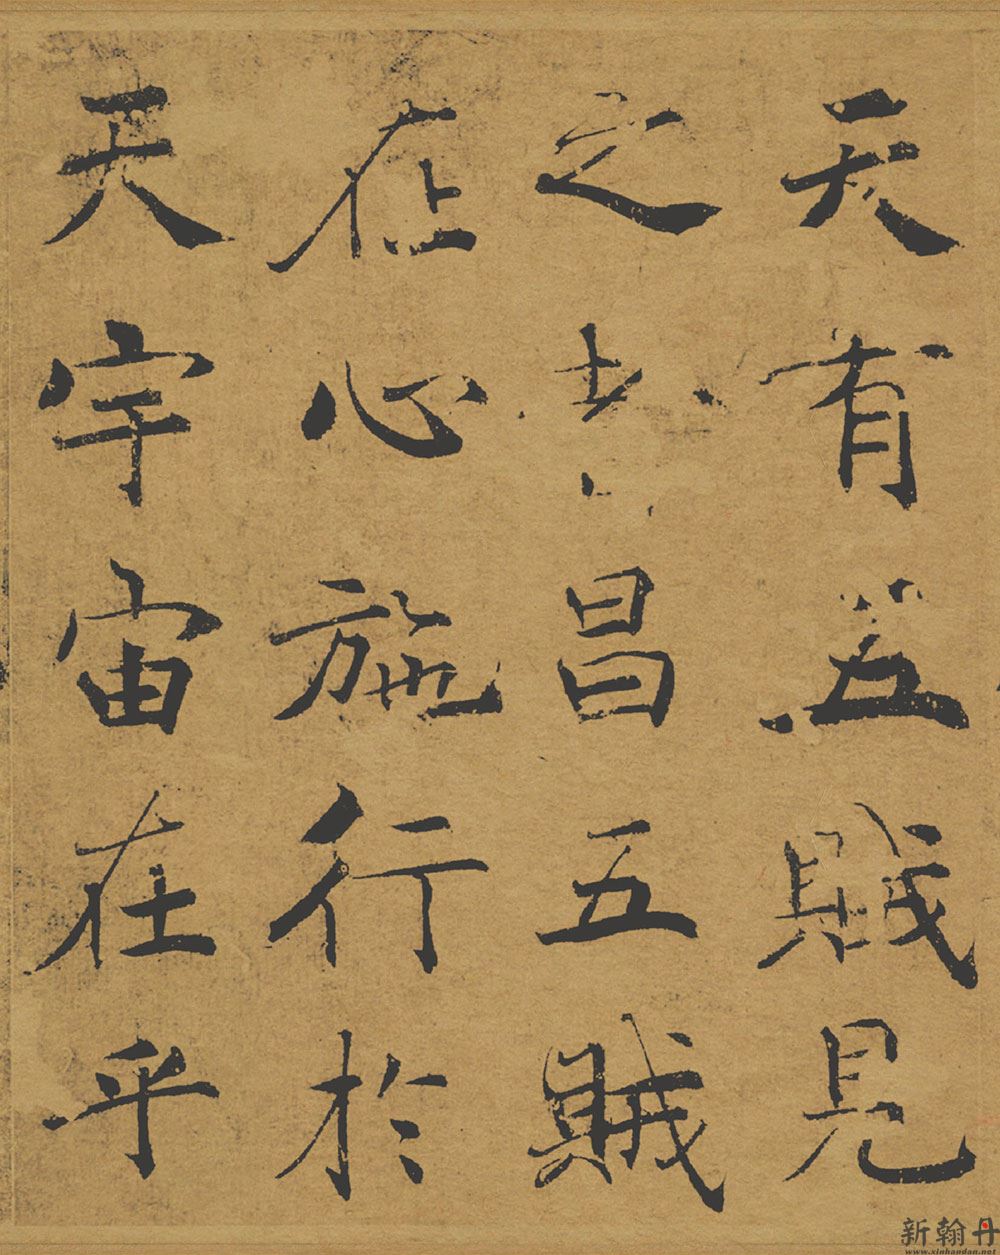 天有五賊見
之昌五賊
在心施行於
天宇宙在乎
新翰丹
www.xinhandan.net